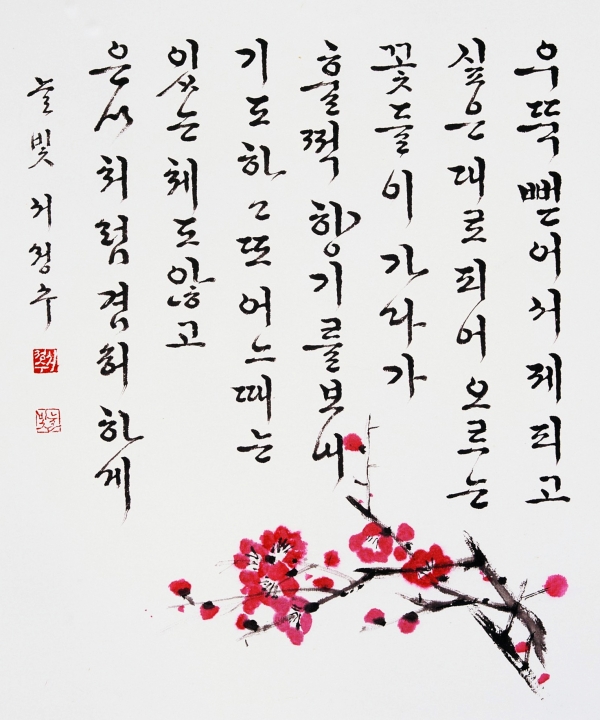 우뚝 뻗어서 제 피고
싶은 대로 피어오르는
꽃들이 가다가
훌쩍 향기를 보내
기도 하고 또 어느 때는
있는 체도 않고
은사처럼 겸허하게
늘빛 서정수